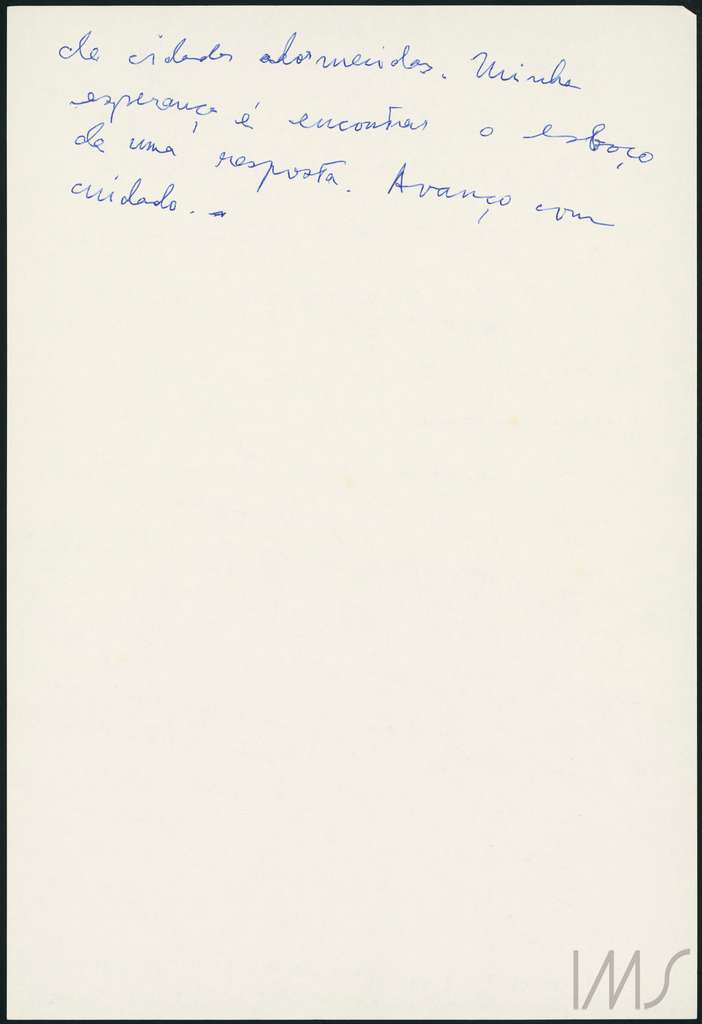 de cidades adormecidas. Minha
esperança é encontrar o esboço
de uma resposta. Avanço com
cuidado. -
IMS